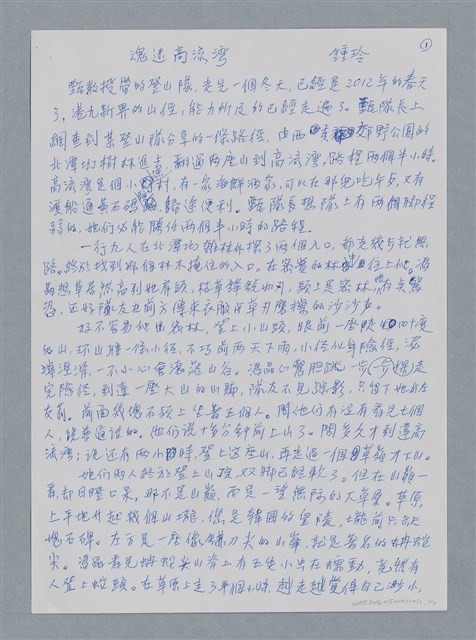 魂迷高流灣 鍾玲 ①
甄教授帶的登山隊，走完一個冬天，已經是2012年的春天
了，港九新界的山徑，能力所及的已經走遍了。甄隊長上
網查到某登山隊分享的一條路徑，由西貢郊野公園的
北潭坳樹林進去，翻過兩座山到高流灣，路程兩個半小時。
高流灣是個小漁村，有一家海鮮酒家，可以在那兒吃午歺，又有
渡船通黃石碼頭，歸途便利。甄隊長想隊上有兩個脚程
弱的，她們必能勝任兩個半小時的路程。
一行九人在北潭坳雜林外探了兩個入口，都走幾步就無
路。終於找到那個林木掩住的入口。在密實的林中往上爬，馮
晶想草居然高到她眉頭，枝草轉銳如刃，頸上是密林，有点
，還好隊友由前方傳來衣服與草刃磨擦的沙沙声。
好不容易爬出密林，登上小山頭，眼前一座陡四十度
的山，環山腰一條小徑，不巧前兩天下雨，小徑化身險徑，泥
壤濕滑，一不小心會滾落山谷。馮晶心驚胆跳一步一步慢走
完險徑，到達一座大山的山脚，隊友不見踪影，只留下她和左
友莉。前面幾塊石頭上坐著五個人。問他們有没有看見七個
人，競賽逗話的。他們說十多分鐘前上山了。問多久才到達高
流灣；說還有兩小時，登上這座山，再走過一個草嶺才下山。
她們兩人終於登上山埡，双脚已經軟了。但在山嶺一
看，却目瞪口呆，那不是山嶺，而是一望無際的大草原。草原
上平地升起幾個山壠，像是韓國的皇陵，壠前只缺
塊石碑。左方是一座像鐮刀尖的山峯，就是著名的蚺蛇
尖。馮晶看見蚺蛇尖山脊上有五隻小虫在蠕動，竟然有
人登上蛇頸。在草原上走了半個小時，越走越覺得自己渺小，